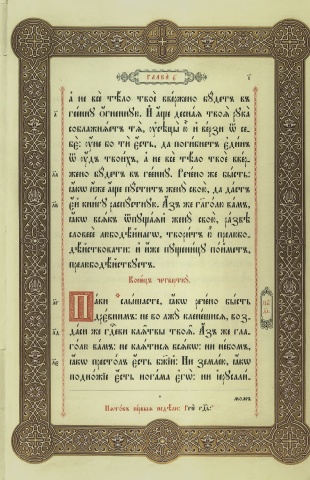 ГЛАВА є҃
а не всѐ тѣ́ло твоѐ вве́ржено бꙋ́детъ въ
гее́ннꙋ ѻ҆́гненнꙋю. И҆ а҆́ще десна́ѧ твоѧ̀ рꙋка̀
соблажнѧ́етъ тѧ̀, ᲂу҆сѣцы̀ ю҆̀ и҆ ве́рзи ѿ се-
бє̀: ᲂу҆́не бо тѝ є҆́сть, да поги́бнетъ є҆ди́нъ
ѿ ᲂу҆́дъ твои́хъ, а не всѐ тѣ́ло твоѐ вве́р-
жено бꙋ́детъ въ гее́ннꙋ. Рече́но же бы́сть:
ꙗ҆́кѡ и҆́же а҆́ще пꙋ́ститъ женꙋ̀ свою̀, да да́стъ
є҆́й кни́гꙋ распꙋ́стнꙋю. А҆́зъ же глаго́лю ва́мъ,
ꙗ҆́кѡ всѧ́къ ѿпꙋща́ѧй женꙋ̀ свою̀, ра́звѣ
словесѐ любодѣ́йнагѡ, твори́тъ ю҆̀ прелю-
бодѣ́йствовати: и҆ и҆́же пꙋщени́цꙋ по́йметъ,
прелюбодѣ́йствꙋетъ.
Коне́цъ четверткꙋ̀.
Па́ки слы́шасте, ꙗ҆́кѡ рече́но бы́сть
дре́внимъ: не во лжꙋ̀ клене́шисѧ, воз-
да́си же гдⷭ҇еви клѧ́твы твоѧ̑. А҆́зъ же гла-
го́лю ва́мъ: не клѧ́тисѧ всѧ́кѡ: ни нб҃омъ,
ꙗ҆́кѡ престо́лъ є҆́сть бж҃їй: Ни земле́ю, ꙗ҆́кѡ
подно́жїе є҆́сть нога́ма є҆гѡ̀: ни і҆ерꙋсали́-